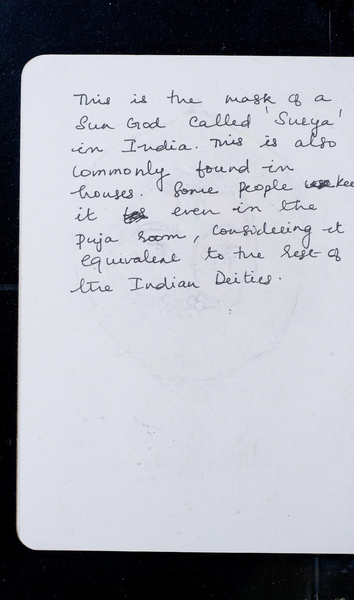 This is the mask of a
Sun God called 'Surya'
in India. This is also
commonly found in
houses. Some people kee
it even in the
puja room, considering it
equivalent to the rest of
the Indian Deities.